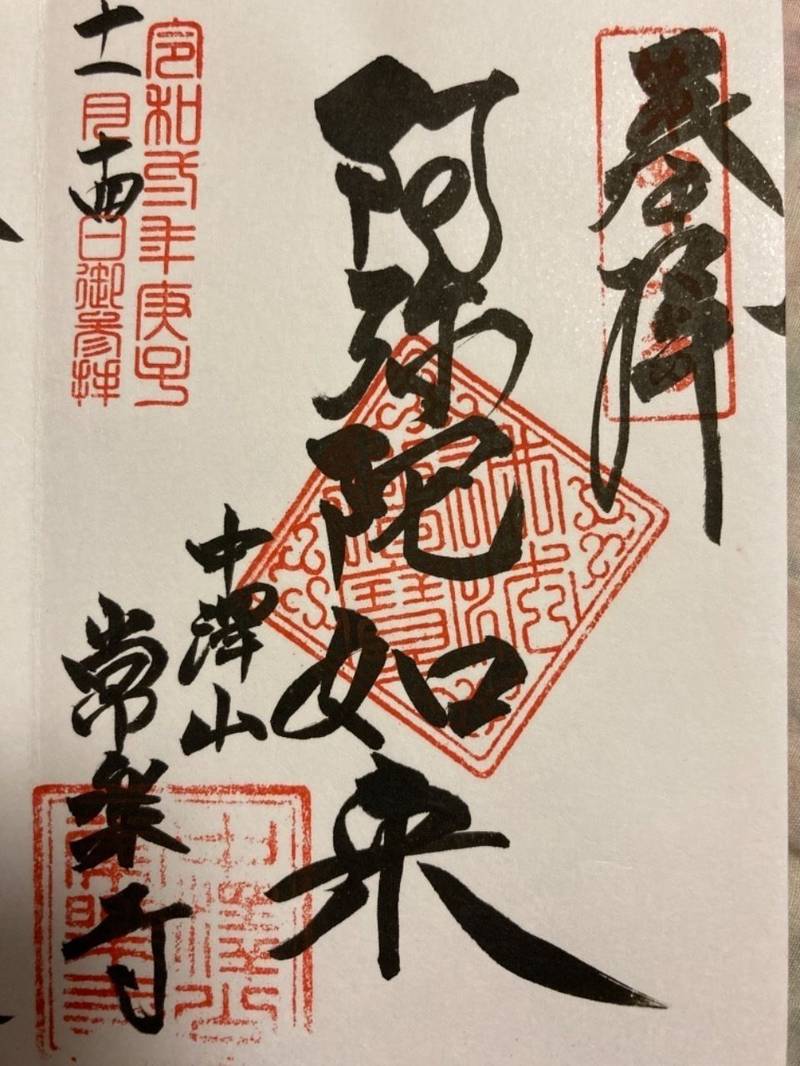 奉拝
阿弥陀如来
中澤山
常楽寺
令和弐年庚子
十一月十四日御参拝